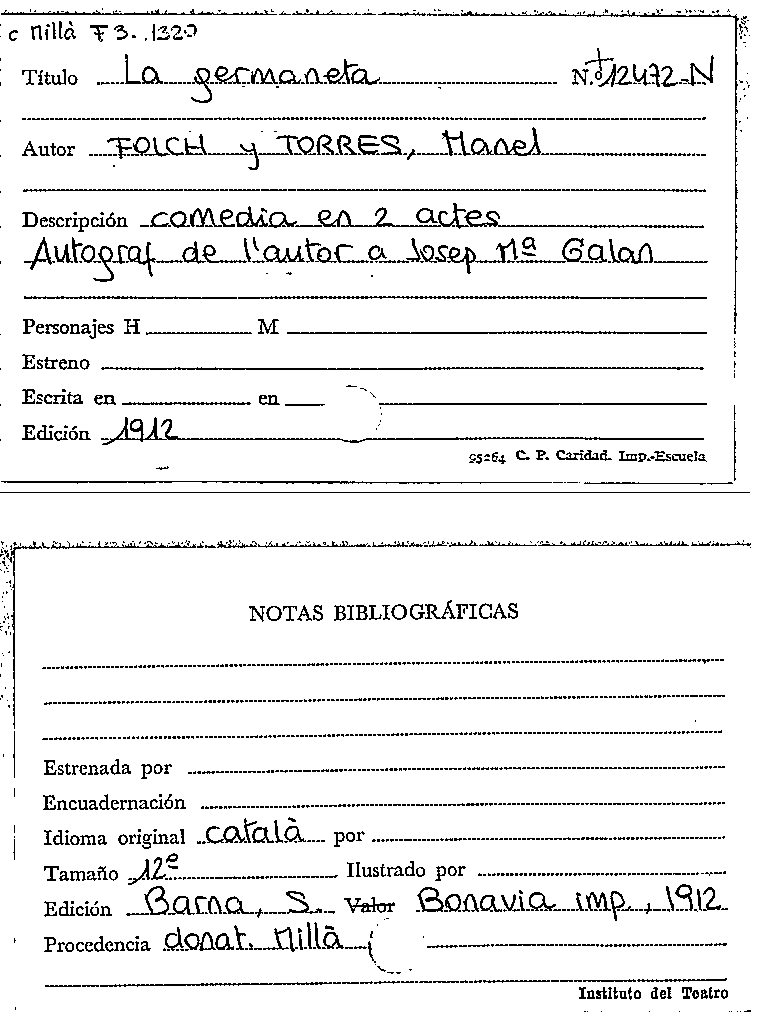 c Millà F 3. .1320
Título La germaneta N.º 12472-N
Autor FOLCH y TORRES, Manel
Descripción comedia en 2 actes
Autograf de l'autor a Josep Mª Galan
Personajes H M
Estreno
Escrita en en
Edición 1912
95264 C. P. Caridad. Imp.-Escuela
NOTAS BIBLIOGRÁFICAS
Estrenada por
Encuadernación
Idioma original català por
Tamaño 12º Ilustrado por
Edición Barna, S. Valor Bonavia imp, 1912
Procedencia donat. Millà
Instituto del Teatro